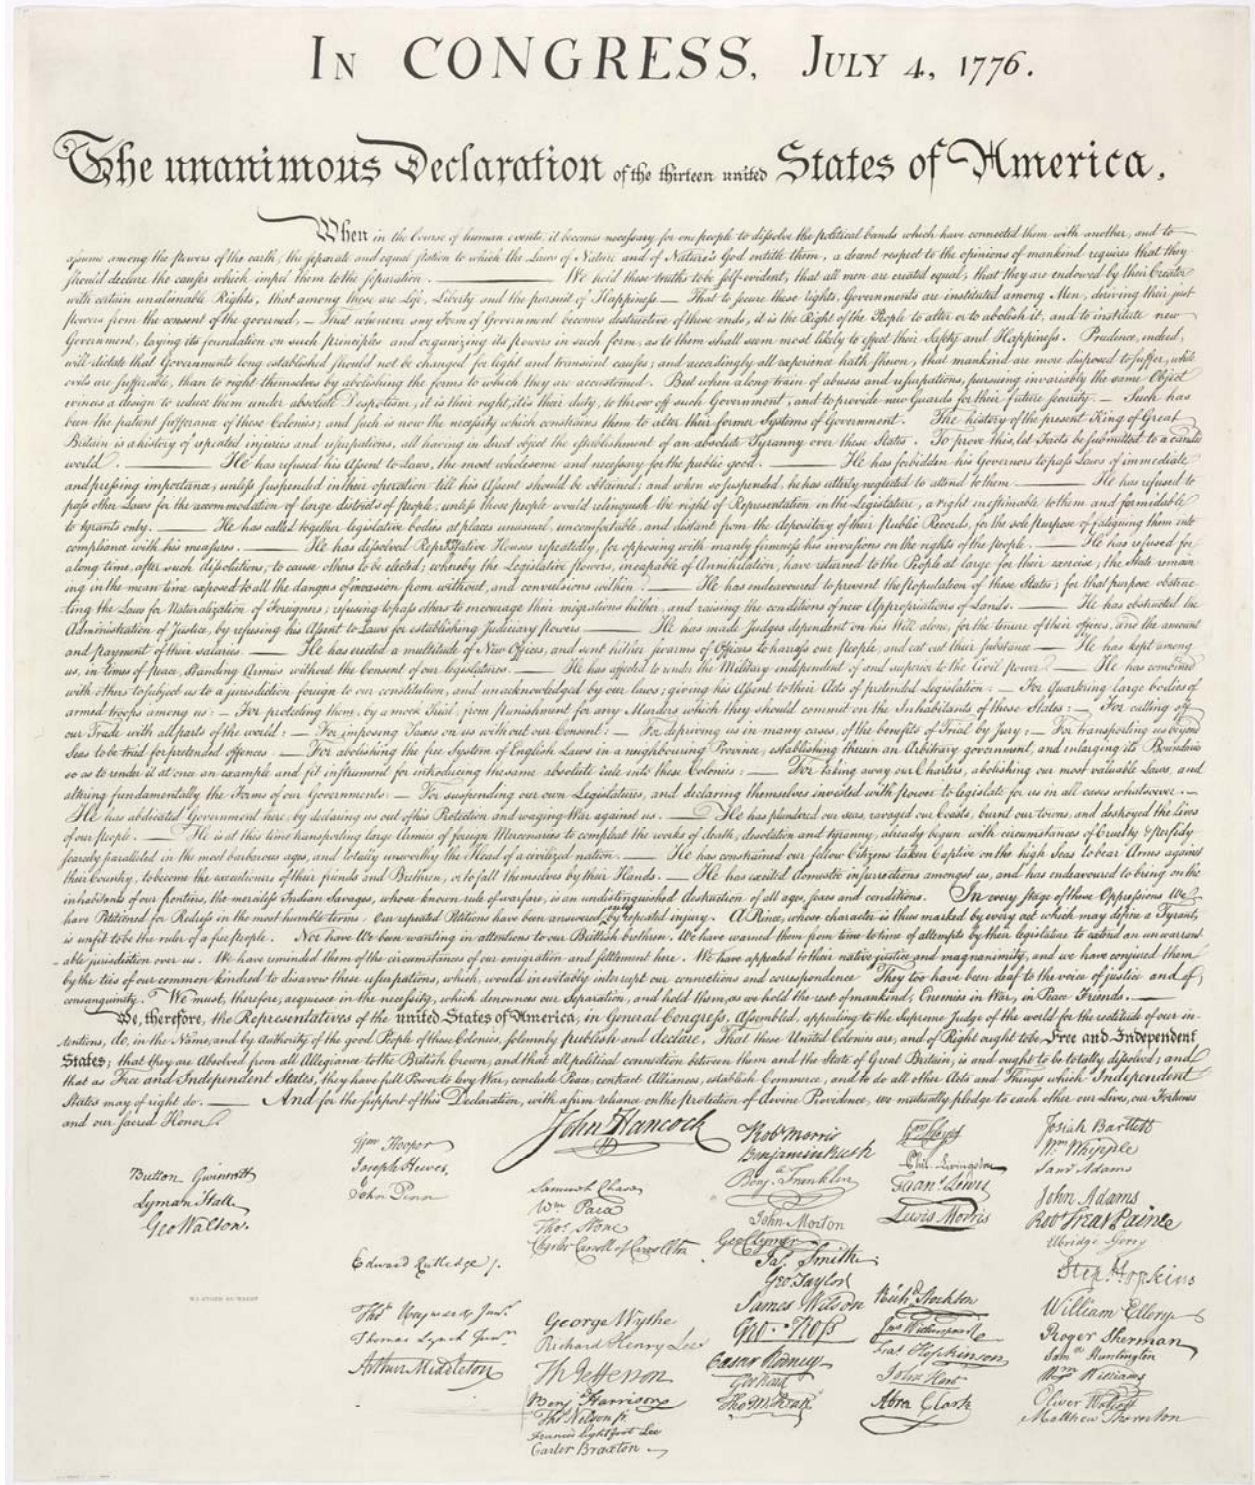 In CONGRESS, July 4, 1776.
The unanimous Declaration of the thirteen united States of America,
When in the Course of human events, it becomes necessary for one people to dissolve the political bands which have connected them with another, and to
assume among the powers of the earth, the separate and equal station to which the Laws of Nature and of Nature's God entitle them, a decent respect to the opinions of mankind requires that they
should declare the causes which impel them to the separation. ——— We hold these truths to be self-evident, that all men are created equal, that they are endowed by their Creator
with certain unalienable Rights, that among these are Life, Liberty and the pursuit of Happiness.— That to secure these rights, Governments are instituted among Men, deriving their just
powers from the consent of the governed, — That whenever any Form of Government becomes destructive of these ends, it is the Right of the People to alter or to abolish it, and to institute new
Government, laying its foundation on such principles and organizing its powers in such form, as to them shall seem most likely to effect their Safety and Happiness. Prudence, indeed,
will dictate that Governments long established should not be changed for light and transient causes; and accordingly all experience hath shewn, that mankind are more disposed to suffer, while
evils are sufferable, than to right themselves by abolishing the forms to which they are accustomed. But when a long train of abuses and usurpations, pursuing invariably the same Object
evinces a design to reduce them under absolute Despotism, it is their right, it is their duty, to throw off such Government, and to provide new Guards for their future security. — Such has
been the patient sufferance of these Colonies; and such is now the necessity which constrains them to alter their former Systems of Government. The history of the present King of Great
Britain is a history of repeated injuries and usurpations, all having in direct object the establishment of an absolute Tyranny over these States. To prove this, let Facts be submitted to a candid
world. ——— He has refused his Assent to Laws, the most wholesome and necessary for the public good. ——— He has forbidden his Governors to pass Laws of immediate
and pressing importance, unless suspended in their operation till his Assent should be obtained; and when so suspended, he has utterly neglected to attend to them. ——— He has refused to
pass other Laws for the accommodation of large districts of people, unless those people would relinquish the right of Representation in the Legislature, a right inestimable to them and formidable
to tyrants only. ——— He has called together legislative bodies at places unusual, uncomfortable, and distant from the depository of their Public Records, for the sole purpose of fatiguing them into
compliance with his measures. ——— He has dissolved Representative Houses repeatedly, for opposing with manly firmness his invasions on the rights of the people. ——— He has refused for
a long time, after such dissolutions, to cause others to be elected; whereby the Legislative powers, incapable of Annihilation, have returned to the People at large for their exercise; the State remain
ing in the mean time exposed to all the dangers of invasion from without, and convulsions within. ——— He has endeavoured to prevent the population of these States; for that purpose obstruc
ting the Laws for Naturalization of Foreigners; refusing to pass others to encourage their migrations hither, and raising the conditions of new Appropriations of Lands. ——— He has obstructed the
Administration of Justice, by refusing his Assent to Laws for establishing Judiciary powers. ——— He has made Judges dependent on his Will alone, for the tenure of their offices, and the amount
and payment of their salaries. ——— He has erected a multitude of New Offices, and sent hither swarms of Officers to harrass our people, and eat out their substance. — He has kept among
us, in times of peace, Standing Armies without the Consent of our legislatures. ——— He has affected to render the Military independent of and superior to the Civil power. ——— He has combined
with others to subject us to a jurisdiction foreign to our constitution, and unacknowledged by our laws; giving his Assent to their Acts of pretended Legislation: — For Quartering large bodies of
armed troops among us: — For protecting them, by a mock Trial, from punishment for any Murders which they should commit on the Inhabitants of these States: — For cutting off
our Trade with all parts of the world: — For imposing Taxes on us without our Consent: — For depriving us in many cases, of the benefits of Trial by Jury: — For transporting us beyond
Seas to be tried for pretended offences — For abolishing the free System of English Laws in a neighbouring Province, establishing therein an Arbitrary government, and enlarging its Boundaries
so as to render it at once an example and fit instrument for introducing the same absolute rule into these Colonies: — For taking away our Charters, abolishing our most valuable Laws, and
altering fundamentally the Forms of our Governments: — For suspending our own Legislatures, and declaring themselves invested with power to legislate for us in all cases whatsoever. —
He has abdicated Government here, by declaring us out of his Protection and waging War against us. — He has plundered our seas, ravaged our Coasts, burnt our towns, and destroyed the lives
of our people. — He is at this time transporting large Armies of foreign Mercenaries to compleat the works of death, desolation and tyranny, already begun with circumstances of Cruelty & perfidy
scarcely paralleled in the most barbarous ages, and totally unworthy the Head of a civilized nation. — He has constrained our fellow Citizens taken Captive on the high Seas to bear Arms against
their Country, to become the executioners of their friends and Brethren, or to fall themselves by their Hands. — He has excited domestic insurrections amongst us, and has endeavoured to bring on the
inhabitants of our frontiers, the merciless Indian Savages, whose known rule of warfare, is an undistinguished destruction of all ages, sexes and conditions. In every stage of these Oppressions We
have Petitioned for Redress in the most humble terms: Our repeated Petitions have been answered only by repeated injury. A Prince, whose character is thus marked by every act which may define a Tyrant,
is unfit to be the ruler of a free people. Nor have We been wanting in attentions to our Brittish brethren. We have warned them from time to time of attempts by their legislature to extend an unwarrant
able jurisdiction over us. We have reminded them of the circumstances of our emigration and settlement here. We have appealed to their native justice and magnanimity, and we have conjured them
by the ties of our common kindred to disavow these usurpations, which, would inevitably interrupt our connections and correspondence. They too have been deaf to the voice of justice and of
consanguinity. We must, therefore, acquiesce in the necessity, which denounces our Separation, and hold them, as we hold the rest of mankind, Enemies in War, in Peace Friends. ———
We, therefore, the Representatives of the united States of America, in General Congress, Assembled, appealing to the Supreme Judge of the world for the rectitude of our in-
tentions, do, in the Name, and by Authority of the good People of these Colonies, solemnly publish and declare, That these United Colonies are, and of Right ought to be Free and Independent
States; that they are Absolved from all Allegiance to the British Crown, and that all political connection between them and the State of Great Britain, is and ought to be totally dissolved; and
that as Free and Independent States, they have full Power to levy War, conclude Peace, contract Alliances, establish Commerce, and to do all other Acts and Things which Independent
States may of right do. ——— And for the support of this Declaration, with a firm reliance on the protection of divine Providence, we mutually pledge to each other our Lives, our Fortunes
and our sacred Honor.
Button Gwinnett
Lyman Hall
Geo Walton.
Wm Hooper
Joseph Hewes,
John Penn
Edward Rutledge /.
Thos Heyward Junr.
Thomas Lynch Junr.
Arthur Middleton
John Hancock
Samuel Chase
Wm Paca
Thos Stone
Charles Carroll of Carrollton
George Wythe
Richard Henry Lee
Th Jefferson
Benj Harrison
Thos Nelson jr.
Francis Lightfoot Lee
Carter Braxton
Robt Morris
Benjamin Rush
Benja Franklin
John Morton
Geo Clymer
Jas Smith
Geo Taylor
James Wilson
Geo. Ross
Caesar Rodney
Geo Read
Tho M:Kean
Wm Floyd
Phil. Livingston
Frans Lewis
Lewis Morris
Richd Stockton
Jno Witherspoon
Fras Hopkinson
John Hart
Abra Clark
Josiah Bartlett
Wm Whipple
Saml Adams
John Adams
Robt Treat Paine
Elbridge Gerry
Step. Hopkins
William Ellery
Roger Sherman
Saml Huntington
Wm Williams
Oliver Wolcott
Matthew Thornton